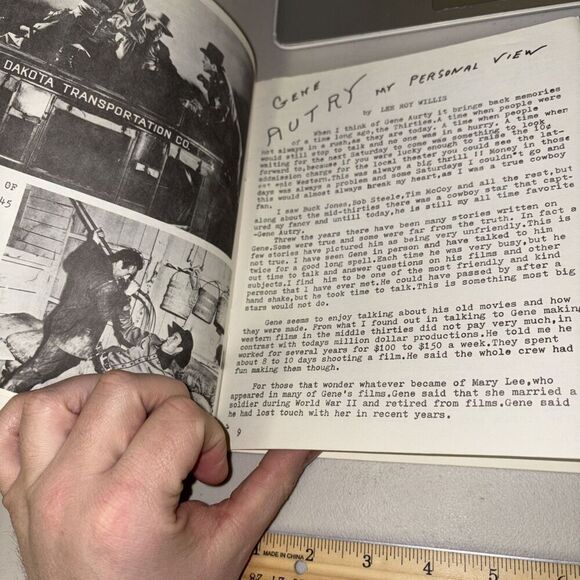 DAKOTA TRANSPORTATION CO.
OF
45
GENE
AUTRY MY PERSONAL VIEW
by LEE ROY WILLIS
When I think of Gene Aurty it brings back memories
of a time long ago, the Thirties.A time when people were
not always in a rush,as they are today. A time when people
would still stop to talk and no one was in a hurry. A time when
waiting for the next Saturday to come was something to look
forward to,because if you were lucky enough to raise the 10¢
admission charge for the local theater you could see the lat-
est epic western.This was always a big thrill !! Money in those
days was always a problem and some Saturdays I couldn't go and
this would almost always break my heart,as I was a true cowboy
fan.
I saw Buck Jones,Bob Steele,Tim McCoy and all the rest,but
along about the mid-thirties there was a cowboy star that capt-
ured my fancy and untill today,he is still my all time favorite
-Gene Autry.
Threw the years there have been many stories written on
Gene.Some were true and some were far from the truth. In fact a
few stories have pictured him as being very unfriendly.This is
not true. I have seen Gene in person and have talked to him
twice for a good long spell.Each time he was very busy,but he
out time to talk and answer questions on his films and other
subjects.I find him to be one of the most friendly and kind
persons that I have ever met.He could have passed by after a
hand shake,but he took time to talk.This is something most big
stars would not do.
Gene seems to enjoy talking about his old movies and how
they were made. From what I found out in talking to Gene making
western films in the middle thirties did not pay very much,in
contrast with todays million dollar productions.He told me he
worked for several years for $100 to $150 a week.They spent
about 8 to 10 days shooting a film.He said the whole crew had
fun making them though.
For those that wonder whatever became of Mary Lee,who
appeared in many of Gene's films.Gene said that she married a
soldier during World War II and retired from films.Gene said
he had lost touch with her in recent years.
9
MADE IN CHINA 2 3 4 5 6